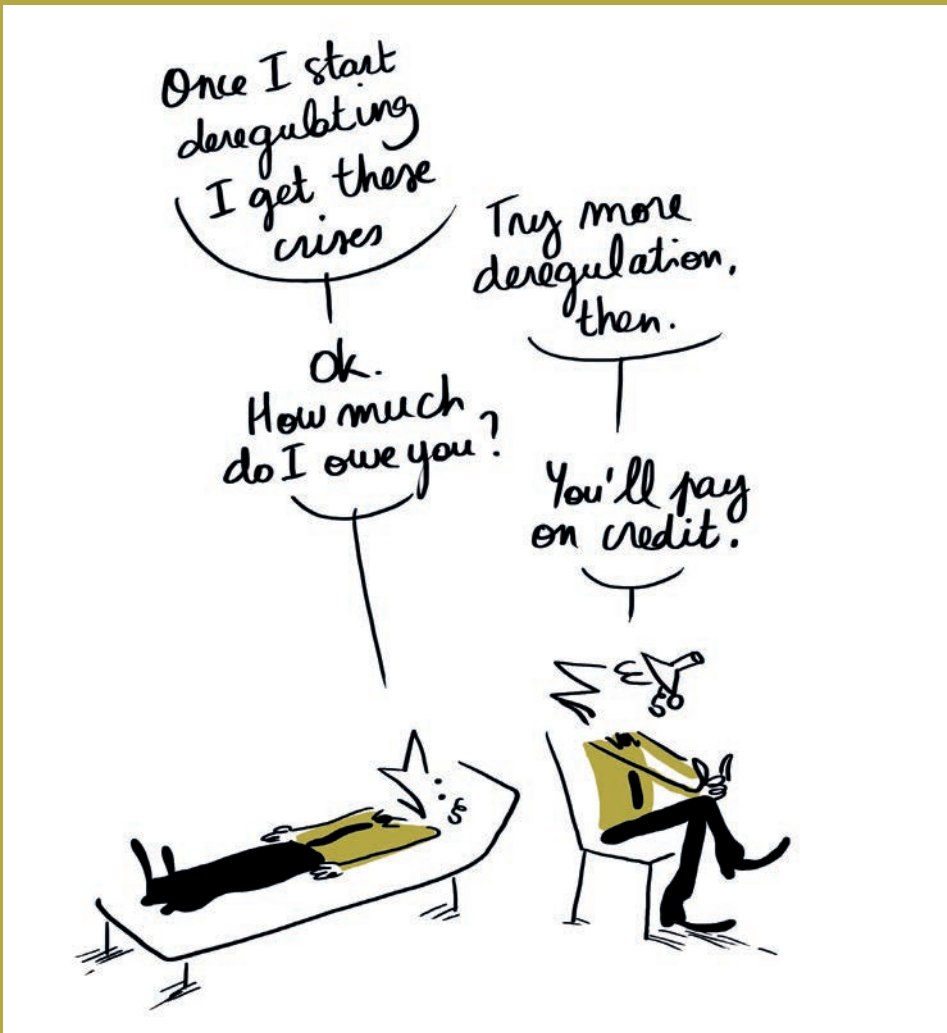 Once I start
deregulating
I get these
crises
Try more
deregulation,
then.
Ok.
How much
do I owe you?
You'll pay
on credit.